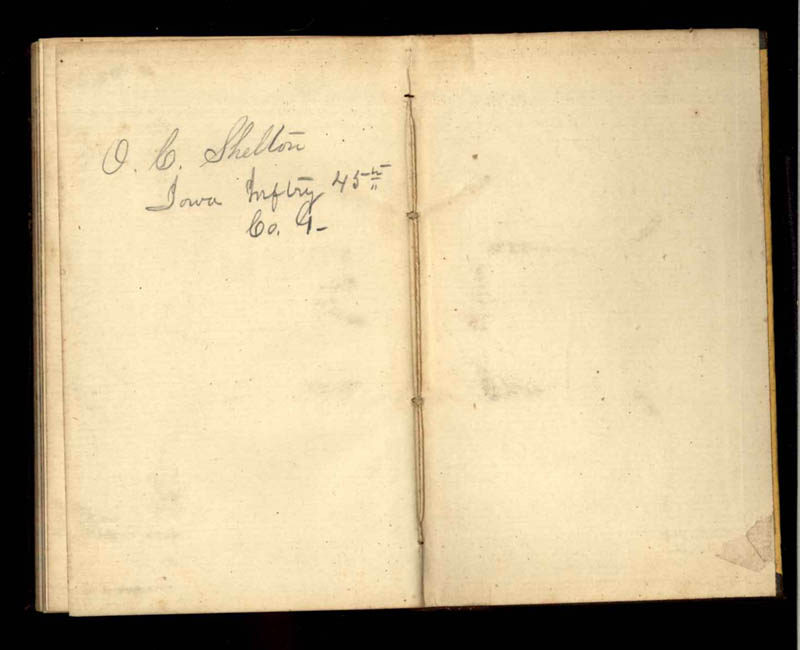 O. C. Shelton
Iowa Inftry 45th
Co. G-